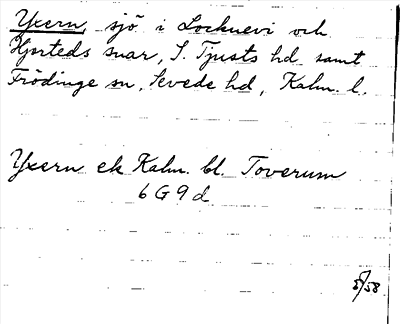 Yxern, sjö i Locknevi och
Hjorteds snar, S. Tjusts hd samt
Frödinge sn, Sevede hd, Kalm. l.
Yxern ek Kalm. bl. Toverum
6 G 9 d
5/58